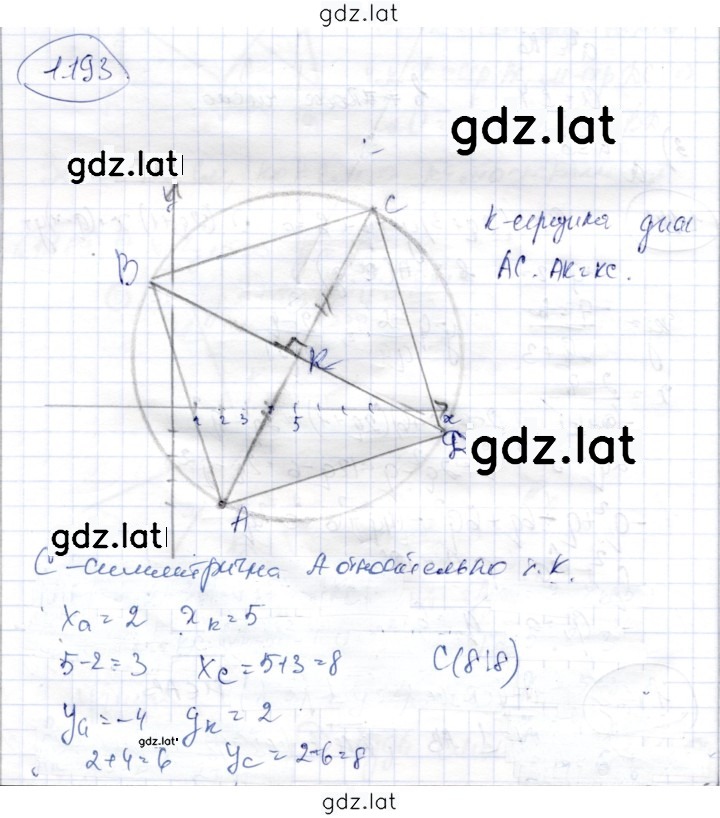 gdz.lat
1193
gdz.lat
gdz.lat
y
C
K-середина диаг
AC. AK=KC.
B
K
1 2 3 5 x
gdz.lat
A
gdz.lat
C-симметрична A относительно т. K.
xa = 2 xk = 5
5-2=3 xc = 5+3=8 C(8;8)
ya = -4 yk = 2
gdz.lat
2+4=6 yc = 2+6=8
gdz.lat